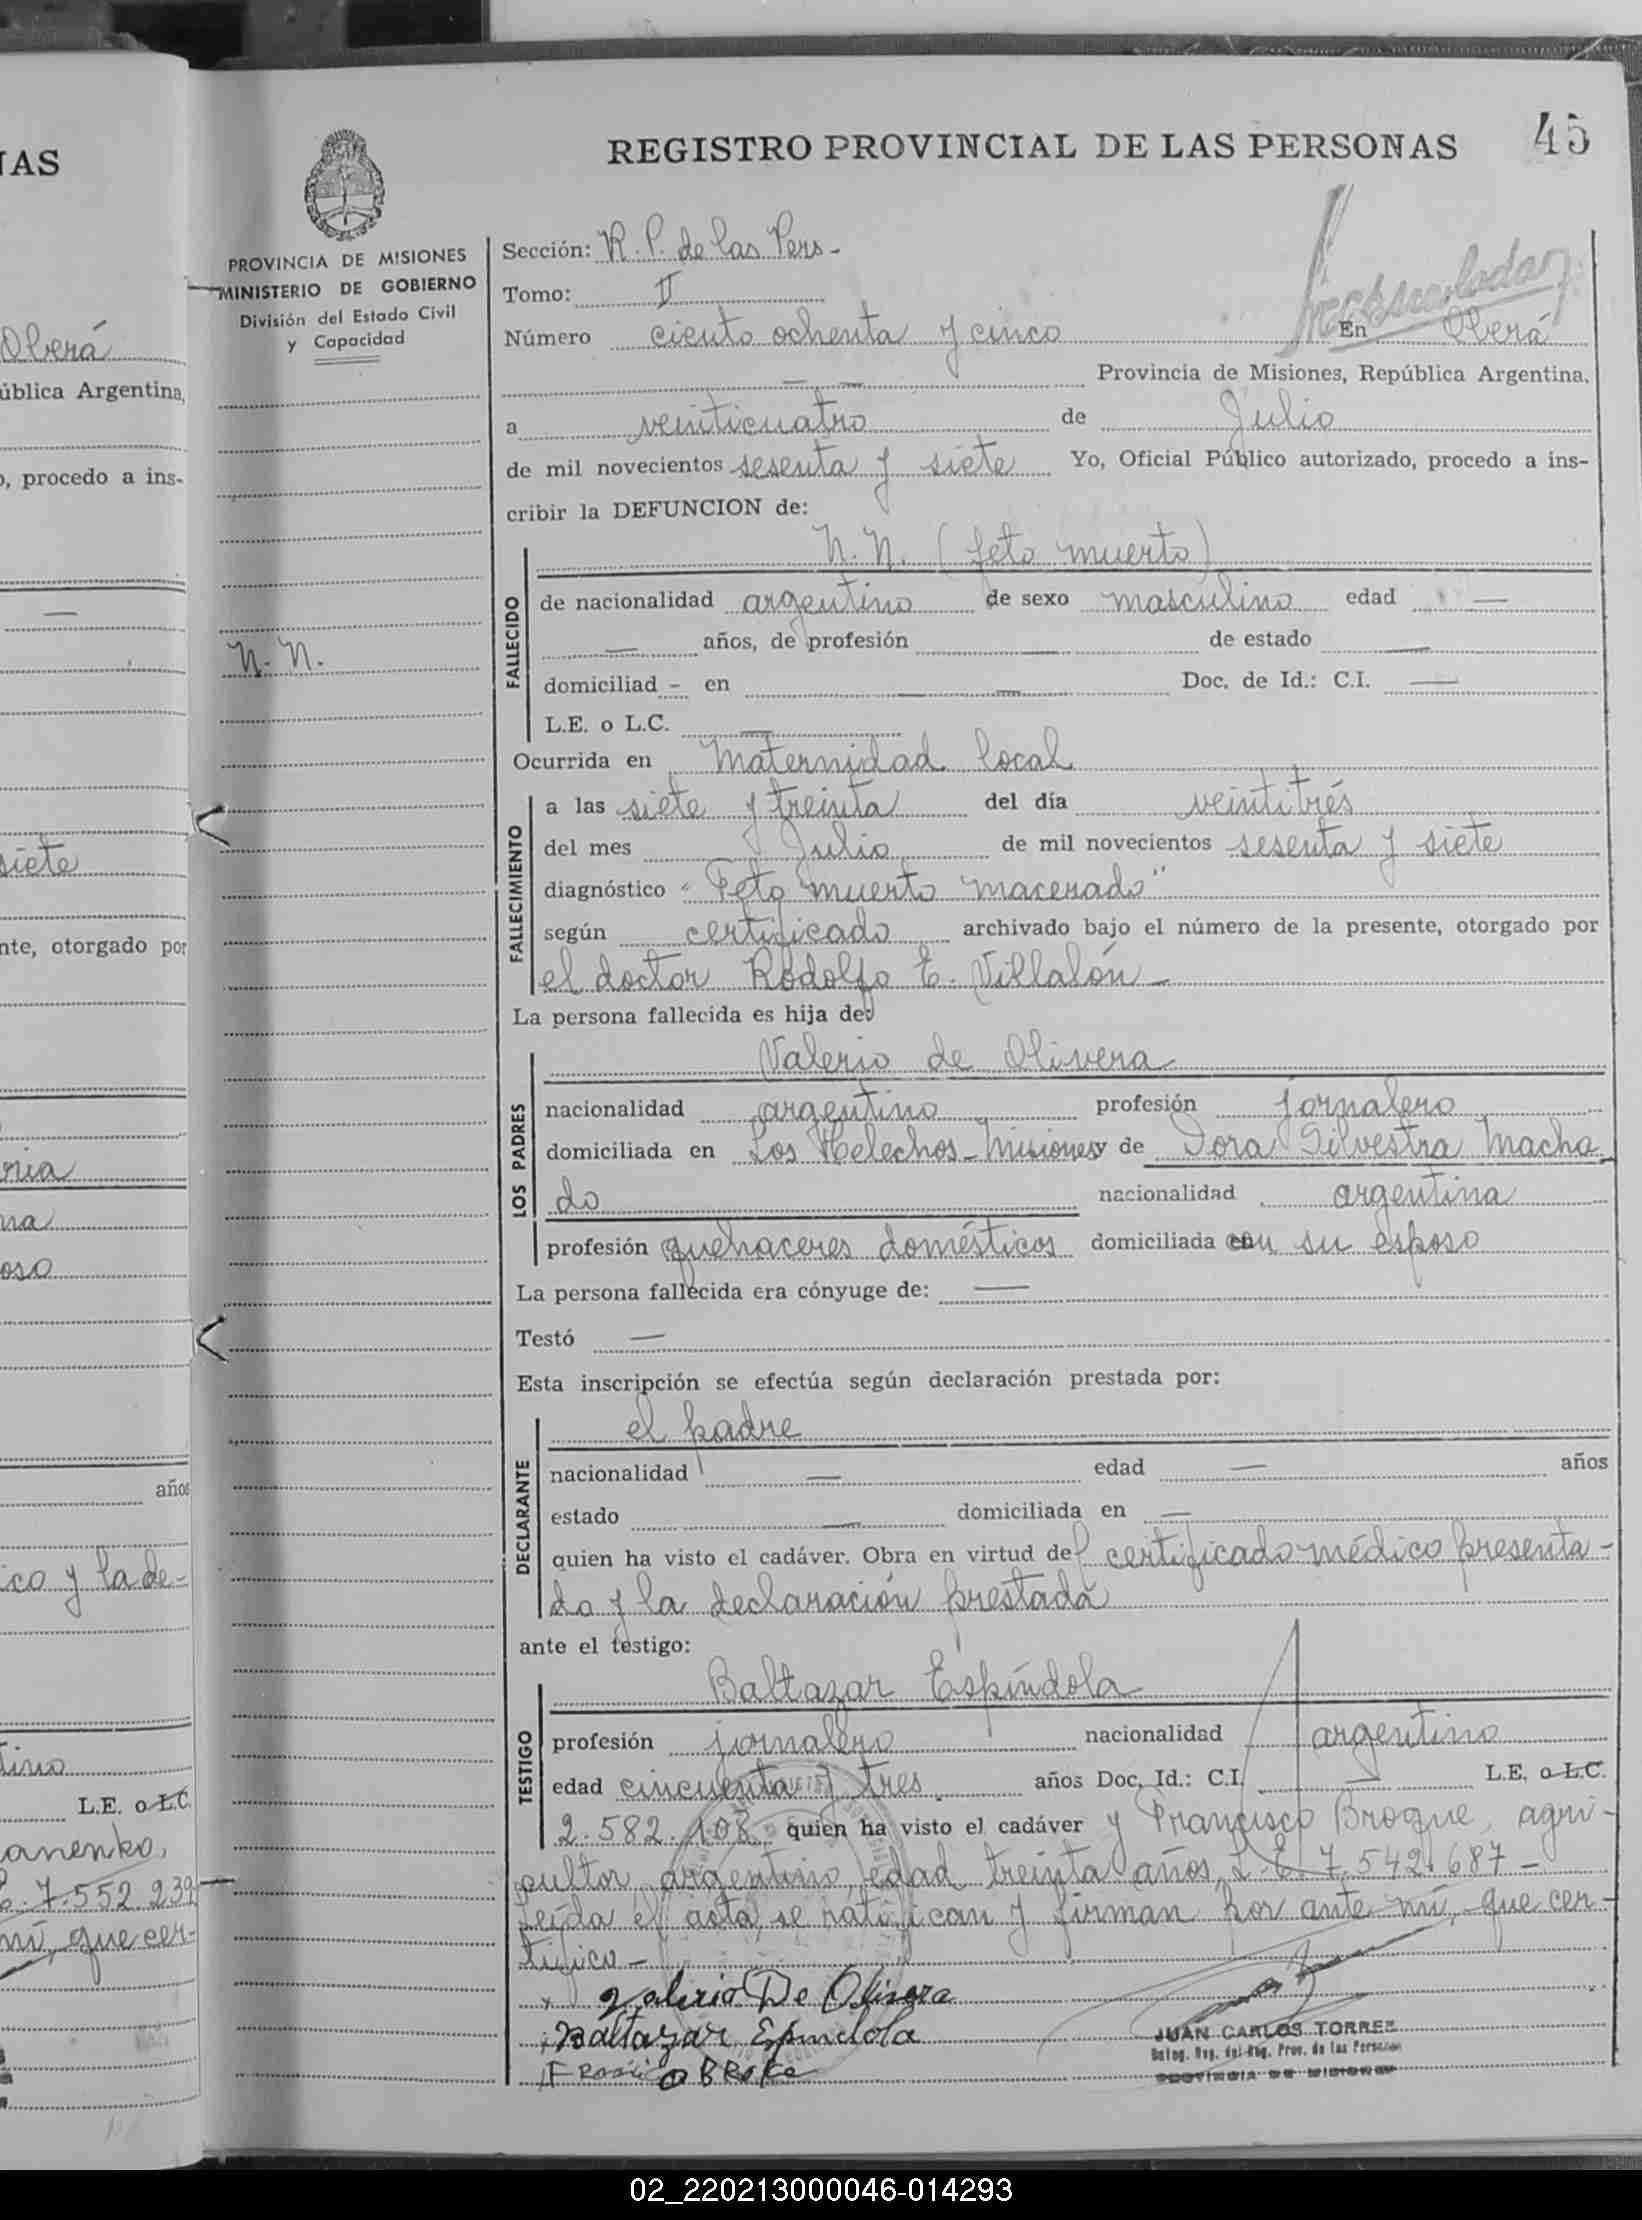 REGISTRO PROVINCIAL DE LAS PERSONAS 45
PROVINCIA DE MISIONES
MINISTERIO DE GOBIERNO
División del Estado Civil
y Capacidad
N. N.
Sección: R. P. de las Pers -
Tomo: II
Número ciento ochenta y cinco En Oberá
— — Provincia de Misiones, República Argentina,
a veinticuatro de Julio
de mil novecientos sesenta y siete Yo, Oficial Público autorizado, procedo a ins-
cribir la DEFUNCION de:
N. N. (feto muerto)
FALLECIDO
de nacionalidad argentino de sexo masculino edad —
— años, de profesión — de estado —
domiciliad - en — — Doc. de Id.: C.I. —
L.E. o L.C. —
Ocurrida en Maternidad local
FALLECIMIENTO
a las siete y treinta del día veintitrés
del mes Julio de mil novecientos sesenta y siete
diagnóstico "Feto muerto macerado"
según certificado archivado bajo el número de la presente, otorgado por
el doctor Rodolfo E. Villalón -
La persona fallecida es hija de:
LOS PADRES
Valerio de Olivera
nacionalidad argentino profesión jornalero
domiciliada en Los Helechos - Misiones y de Dora Silvestra Macha
do nacionalidad argentina
profesión quehaceres domésticos domiciliada con su esposo
La persona fallecida era cónyuge de: —
Testó —
Esta inscripción se efectúa según declaración prestada por:
DECLARANTE
el padre
nacionalidad — edad — años
estado — domiciliada en —
quien ha visto el cadáver. Obra en virtud del certificado médico presenta-
do y la declaración prestada
ante el testigo:
TESTIGO
Baltazar Espíndola
profesión jornalero nacionalidad argentino
edad cincuenta y tres años Doc. Id.: C.I. — L.E. o L.C.
2.582.108 quien ha visto el cadáver y Francisco Broque, agri-
cultor, argentino, edad treinta años, L.E. 7.542.687 -
Leída el acta, se ratifican y firman por ante mí, que cer-
tifico -
Valerio De Olivera
Baltazar Espindola
JUAN CARLOS TORREZ
Deleg. Reg. del Reg. Prov. de las Personas
PROVINCIA DE MISIONES
AS
Oberá
ública Argentina,
o, procedo a ins-
siete
nte, otorgado por
ria
na
oso
años
ico y la de-
tino
L.E. o L.C.
anenko,
7.552.239
mí, que cer-
02_220213000046-014293